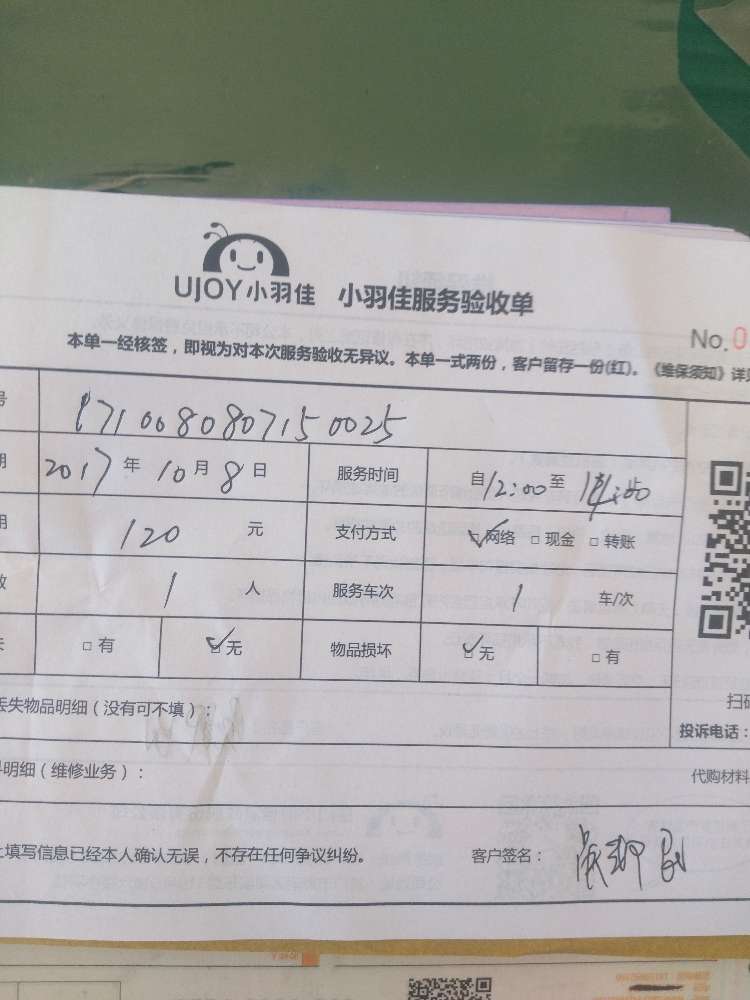 UJOY小羽佳 小羽佳服务验收单
No.0
本单一经核签，即视为对本次服务验收无异议。本单一式两份，客户留存一份(红)。《维保须知》详见
号 171008080715 0025
期 2017 年 10 月 8 日 服务时间 自 12:00 至
用 120 元 支付方式 ☑网络 □现金 □转账
数 1 人 服务车次 1 车/次
失 □有 ☑无 物品损坏 ☑无 □有
扫码
丢失物品明细（没有可不填）：
投诉电话：
料明细（维修业务）：
代购材料
上填写信息已经本人确认无误，不存在任何争议纠纷。 客户签名：